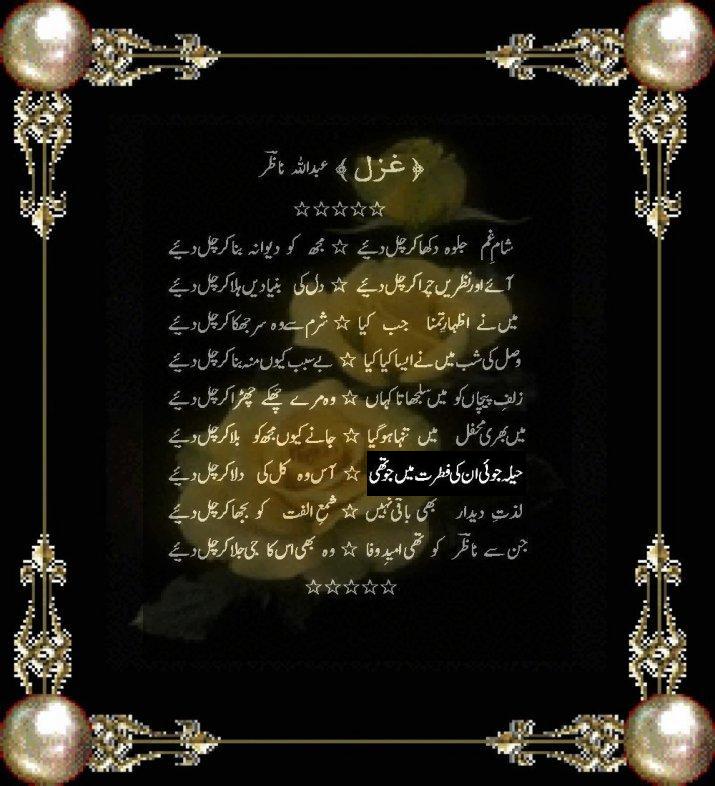 ﴿ غزل ﴾ عبداللہ ناظرؔ
☆☆☆☆☆
شامِ غم جلوہ دکھا کر چل دیئے ☆ مجھ کو دیوانہ بنا کر چل دیئے
آئے اور نظریں چرا کر چل دیئے ☆ دل کی بنیادیں ہلا کر چل دیئے
میں نے اظہارِ تمنا جب کیا ☆ شرم سے وہ سر جھکا کر چل دیئے
وصل کی شب میں نے ایسا کیا کیا ☆ بے سبب کیوں منہ بنا کر چل دیئے
زلفِ پیچاں کو میں سلجھاتا کہاں ☆ وہ مرے چھکے چھڑا کر چل دیئے
میں بھری محفل میں تنہا ہو گیا ☆ جانے کیوں مجھ کو بلا کر چل دیئے
حیلہ جوئی ان کی فطرت میں جو تھی ☆ آس وہ کل کی دلا کر چل دیئے
لذتِ دیدار بھی باقی نہیں ☆ شمعِ الفت کو بجھا کر چل دیئے
جن سے ناظرؔ کو تھی امیدِ وفا ☆ وہ بھی اس کا جی جلا کر چل دیئے
☆☆☆☆☆